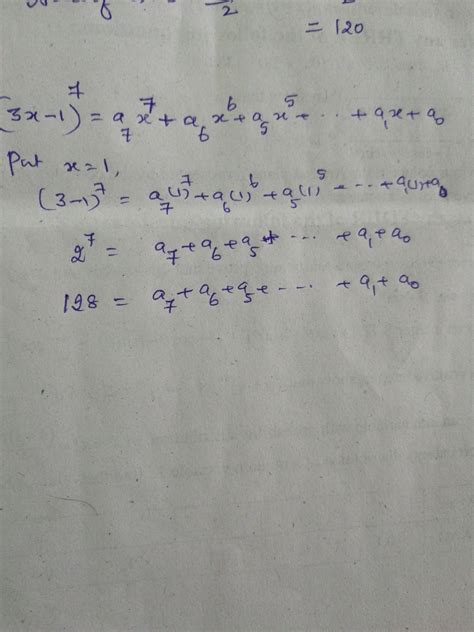 2
= 120
(3x-1)⁷ = a₇x⁷ + a₆x⁶ + a₅x⁵ + ... + a₁x + a₀
Put x=1,
(3-1)⁷ = a₇(1)⁷ + a₆(1)⁶ + a₅(1)⁵ ... + a₁(1) + a₀
2⁷ = a₇+a₆+a₅+ ... + a₁+a₀
128 = a₇+a₆+a₅+ ... + a₁+a₀